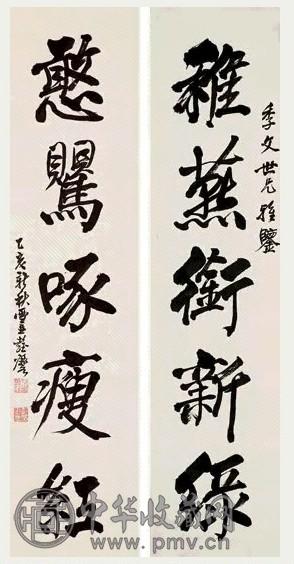 季文世兄雅鑒
稚燕銜新綠
憨鸎啄瘦紅
乙亥新秋
中华收藏网
www.pmv.cn